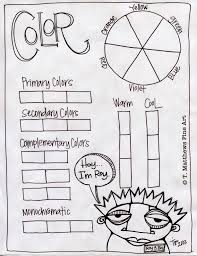 COLOR
Yellow
Orange
Green
Red
Blue
Violet
Primary Colors
Secondary Colors
Warm
Cool
Complementary Colors
Hey...
I'm Roy.
Monochromatic
© T. Matthews Fine Art